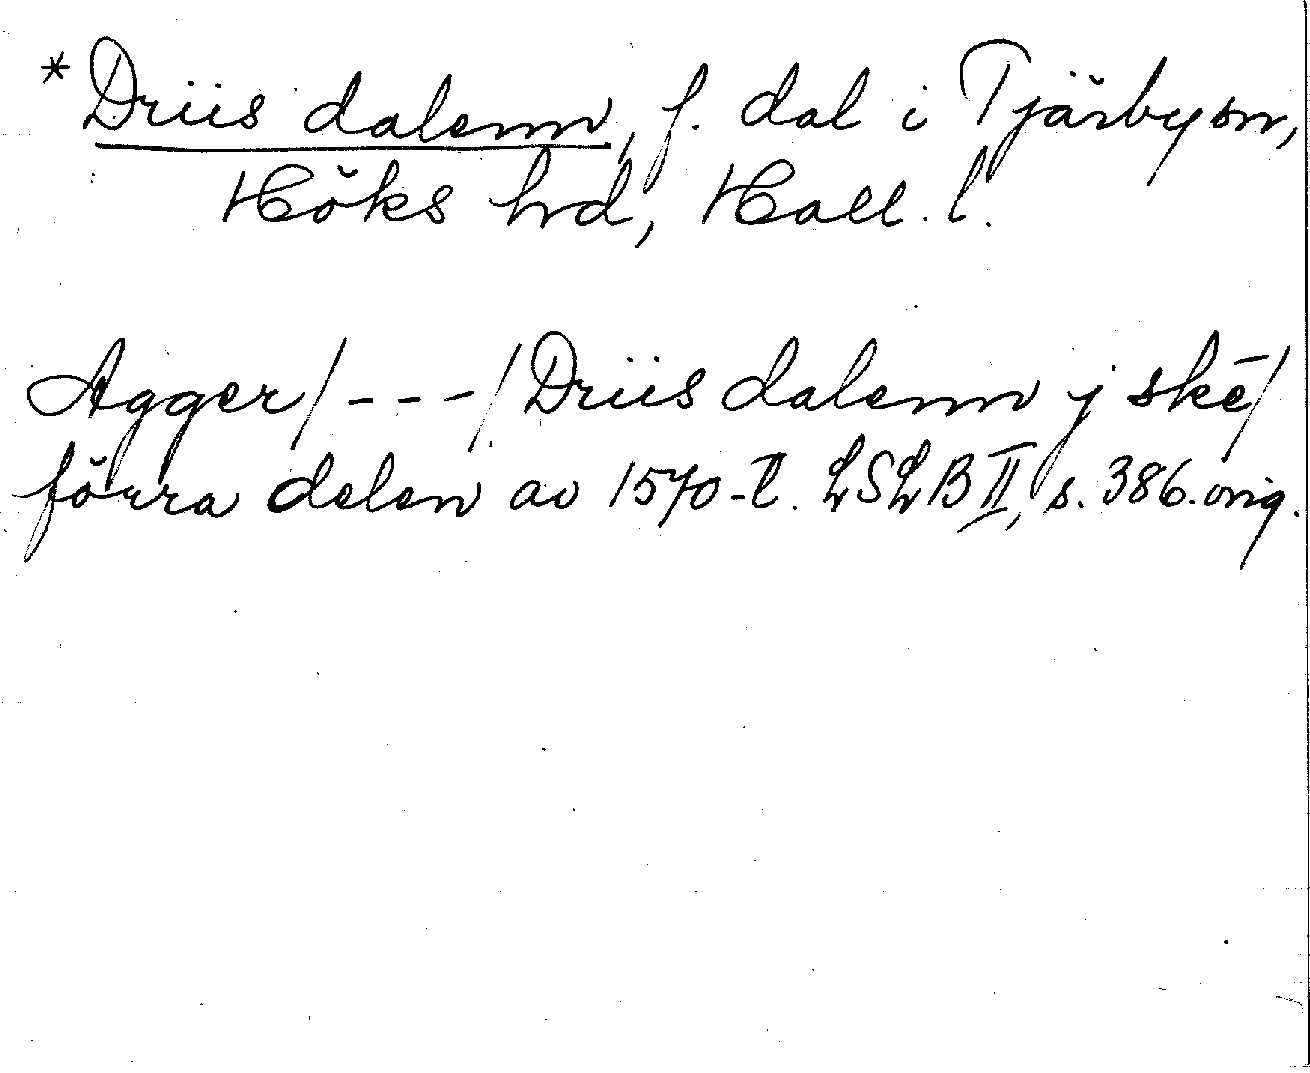 *Driis dalenn, f. dal i Tjärby sn,
Höks hrd, Hall. l.
Agger/---/Driis dalenn j skē/
förra delen av 1570-t. LSLB II, s. 386. orig.